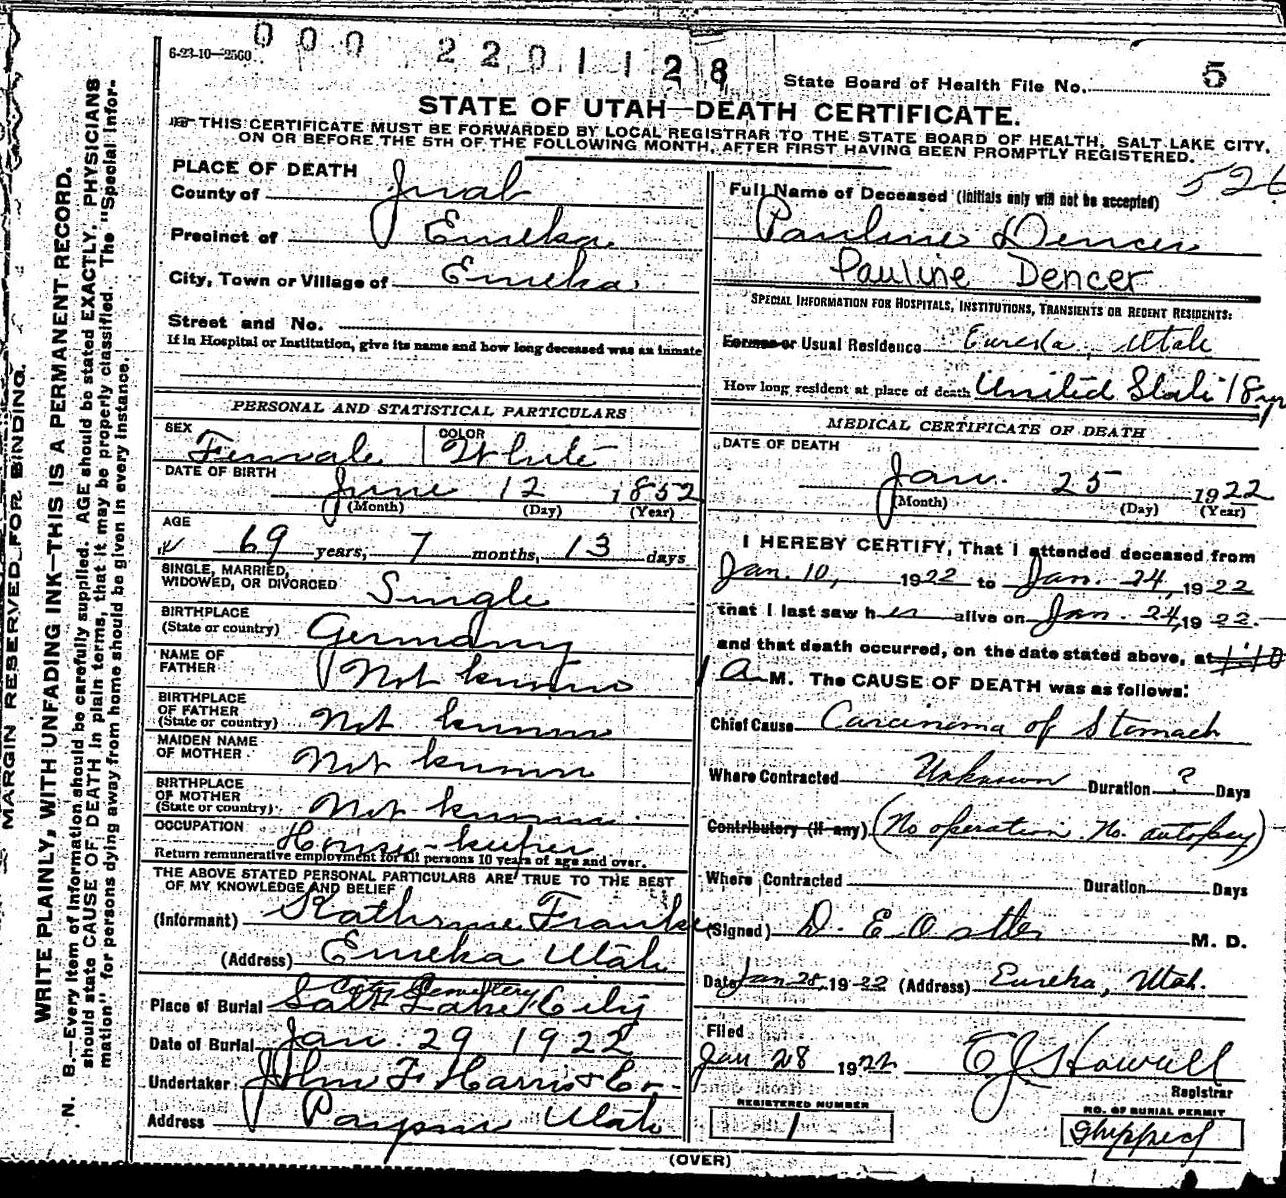 6-23-10—2560
000 2201128
State Board of Health File No. 5
STATE OF UTAH—DEATH CERTIFICATE.
THIS CERTIFICATE MUST BE FORWARDED BY LOCAL REGISTRAR TO THE STATE BOARD OF HEALTH, SALT LAKE CITY,
ON OR BEFORE THE 5TH OF THE FOLLOWING MONTH, AFTER FIRST HAVING BEEN PROMPTLY REGISTERED.
MARGIN RESERVED FOR BINDING.
WRITE PLAINLY, WITH UNFADING INK—THIS IS A PERMANENT RECORD.
N. B.—Every item of information should be carefully supplied. AGE should be stated EXACTLY. PHYSICIANS
should state CAUSE OF DEATH in plain terms, that it may be properly classified. The "Special Infor-
mation" for persons dying away from home should be given in every instance.
PLACE OF DEATH
County of Juab
Precinct of Eureka
City, Town or Village of Eureka
Street and No.
If in Hospital or Institution, give its name and how long deceased was an inmate
PERSONAL AND STATISTICAL PARTICULARS
SEX Female COLOR White
DATE OF BIRTH June 12 1852
(Month) (Day) (Year)
AGE
69 years, 7 months, 13 days
SINGLE, MARRIED,
WIDOWED, OR DIVORCED Single
BIRTHPLACE
(State or country) Germany
NAME OF
FATHER Not known
BIRTHPLACE
OF FATHER
(State or country) Not known
MAIDEN NAME
OF MOTHER Not known
BIRTHPLACE
OF MOTHER
(State or country) Not known
OCCUPATION House-keeper
Return remunerative employment for all persons 10 years of age and over.
THE ABOVE STATED PERSONAL PARTICULARS ARE TRUE TO THE BEST
OF MY KNOWLEDGE AND BELIEF
(Informant) Kathrine Franke
(Address) Eureka Utah
City Cemetery
Place of Burial Salt Lake City
Date of Burial Jan. 29 1922
Undertaker John F. Harris & Co.
Address Payson Utah
526
Full Name of Deceased (initials only will not be accepted)
Pauline Dencer
Pauline Dencer
SPECIAL INFORMATION FOR HOSPITALS, INSTITUTIONS, TRANSIENTS OR RECENT RESIDENTS:
Former or Usual Residence Eureka, Utah
How long resident at place of death United State 18 yr
MEDICAL CERTIFICATE OF DEATH
DATE OF DEATH
Jan. 25 1922
(Month) (Day) (Year)
I HEREBY CERTIFY, That I attended deceased from
Jan. 10, 1922 to Jan. 24, 1922
that I last saw her alive on Jan. 24, 1922.
and that death occurred, on the date stated above, at
1 A M. The CAUSE OF DEATH was as follows:
Chief Cause Carcinoma of Stomach
Where Contracted Unknown Duration ? Days
Contributory (if any) (No operation. No. autopsy)
Where Contracted Duration Days
(Signed) D. E. Ostler M. D.
Date Jan 28, 1922 (Address) Eureka, Utah.
Filed
Jan 28 1922 E J Howell
Registrar
REGISTERED NUMBER
1
NO. OF BURIAL PERMIT
Shipped
(OVER)